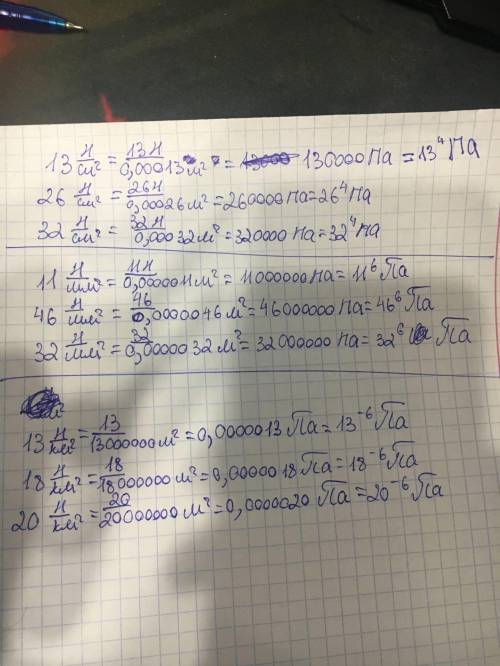 13 Н/см² = 13Н/0,00013м² = 130000 Па = 13⁴ Па
26 Н/см² = 26Н/0,00026м² = 260000 Па = 26⁴ Па
32 Н/см² = 32Н/0,00032м² = 320000 Па = 32⁴ Па
11 Н/мм² = 11Н/0,0000011м² = 11000000 Па = 11⁶ Па
46 Н/мм² = 46/0,0000046м² = 46000000 Па = 46⁶ Па
32 Н/мм² = 32/0,0000032м² = 32000000 Па = 32⁶ Па
13 Н/км² = 13/13000000 м² = 0,0000013 Па = 13⁻⁶ Па
18 Н/км² = 18/18000000 м² = 0,0000018 Па = 18⁻⁶ Па
20 Н/км² = 20/20000000 м² = 0,0000020 Па = 20⁻⁶ Па